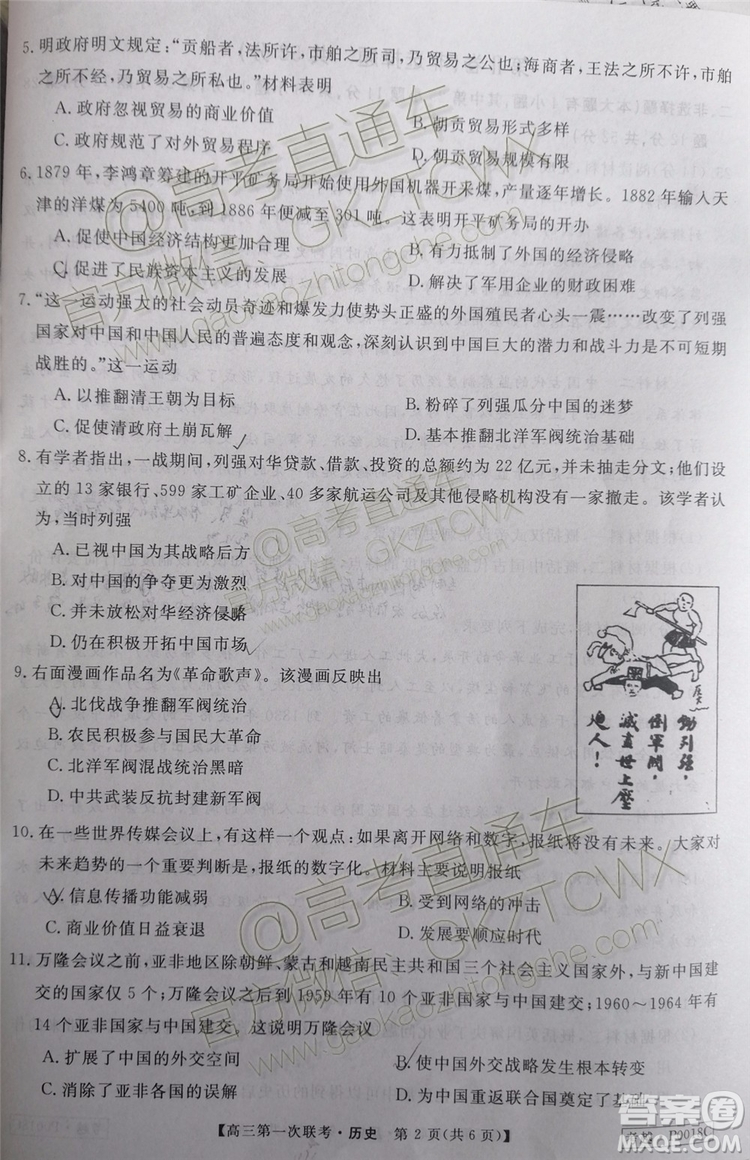 5. 明政府明文规定：“贡船者，法所许，市舶之所司，乃贸易之公也；海商者，王法之所不许，市舶
之所不经，乃贸易之私也。”材料表明
A. 政府忽视贸易的商业价值
B. 朝贡贸易形式多样
C. 政府规范了对外贸易程序
D. 朝贡贸易规模有限
6. 1879 年，李鸿章筹建的开平矿务局开始使用外国机器开采煤，产量逐年增长。1882 年输入天
津的洋煤为 5400 吨，到 1886 年便减至 301 吨。这表明开平矿务局的开办
A. 促使中国经济结构更加合理
B. 有力抵制了外国的经济侵略
C. 促进了民族资本主义的发展
D. 解决了军用企业的财政困难
7. “这一运动强大的社会动员奇迹和爆发力使势头正盛的外国殖民者心头一震……改变了列强
国家对中国和中国人民的普遍态度和观念，深刻认识到中国巨大的潜力和战斗力是不可短期
战胜的。”这一运动
A. 以推翻清王朝为目标
B. 粉碎了列强瓜分中国的迷梦
C. 促使清政府土崩瓦解
D. 基本推翻北洋军阀统治基础
8. 有学者指出，一战期间，列强对华贷款、借款、投资的总额约为 22 亿元，并未抽走分文；他们设
立的 13 家银行、599 家工矿企业、40 多家航运公司及其他侵略机构没有一家撤走。该学者认
为，当时列强
A. 已视中国为其战略后方
B. 对中国的争夺更为激烈
C. 并未放松对华经济侵略
D. 仍在积极开拓中国市场
9. 右面漫画作品名为《革命歌声》。该漫画反映出
A. 北伐战争推翻军阀统治
B. 农民积极参与国民大革命
C. 北洋军阀混战统治黑暗
D. 中共武装反抗封建新军阀
倒军阀，
灭直世上壓
10. 在一些世界传媒会议上，有这样一个观点：如果离开网络和数字，报纸将没有未来。大家对
未来趋势的一个重要判断是，报纸的数字化。材料主要说明报纸
A. 信息传播功能减弱
B. 受到网络的冲击
C. 商业价值日益衰退
D. 发展要顺应时代
11. 万隆会议之前，亚非地区除朝鲜、蒙古和越南民主共和国三个社会主义国家外，与新中国建
交的国家仅 5 个；万隆会议之后到 1959 年有 10 个亚非国家与中国建交；1960～1964 年有
14 个亚非国家与中国建交，这说明万隆会议
A. 扩展了中国的外交空间
B. 使中国外交战略发生根本转变
C. 消除了亚非各国的误解
D. 为中国重返联合国奠定了基础
【高三第一次联考·历史 第 2 页(共 6 页)】
@高考直通车
官方微信：GKZTCWX
www.gaokaozhitongche.com
@高考直通车
官方微信：GKZTCWX
www.gaokaozhitongche.com
答案圈